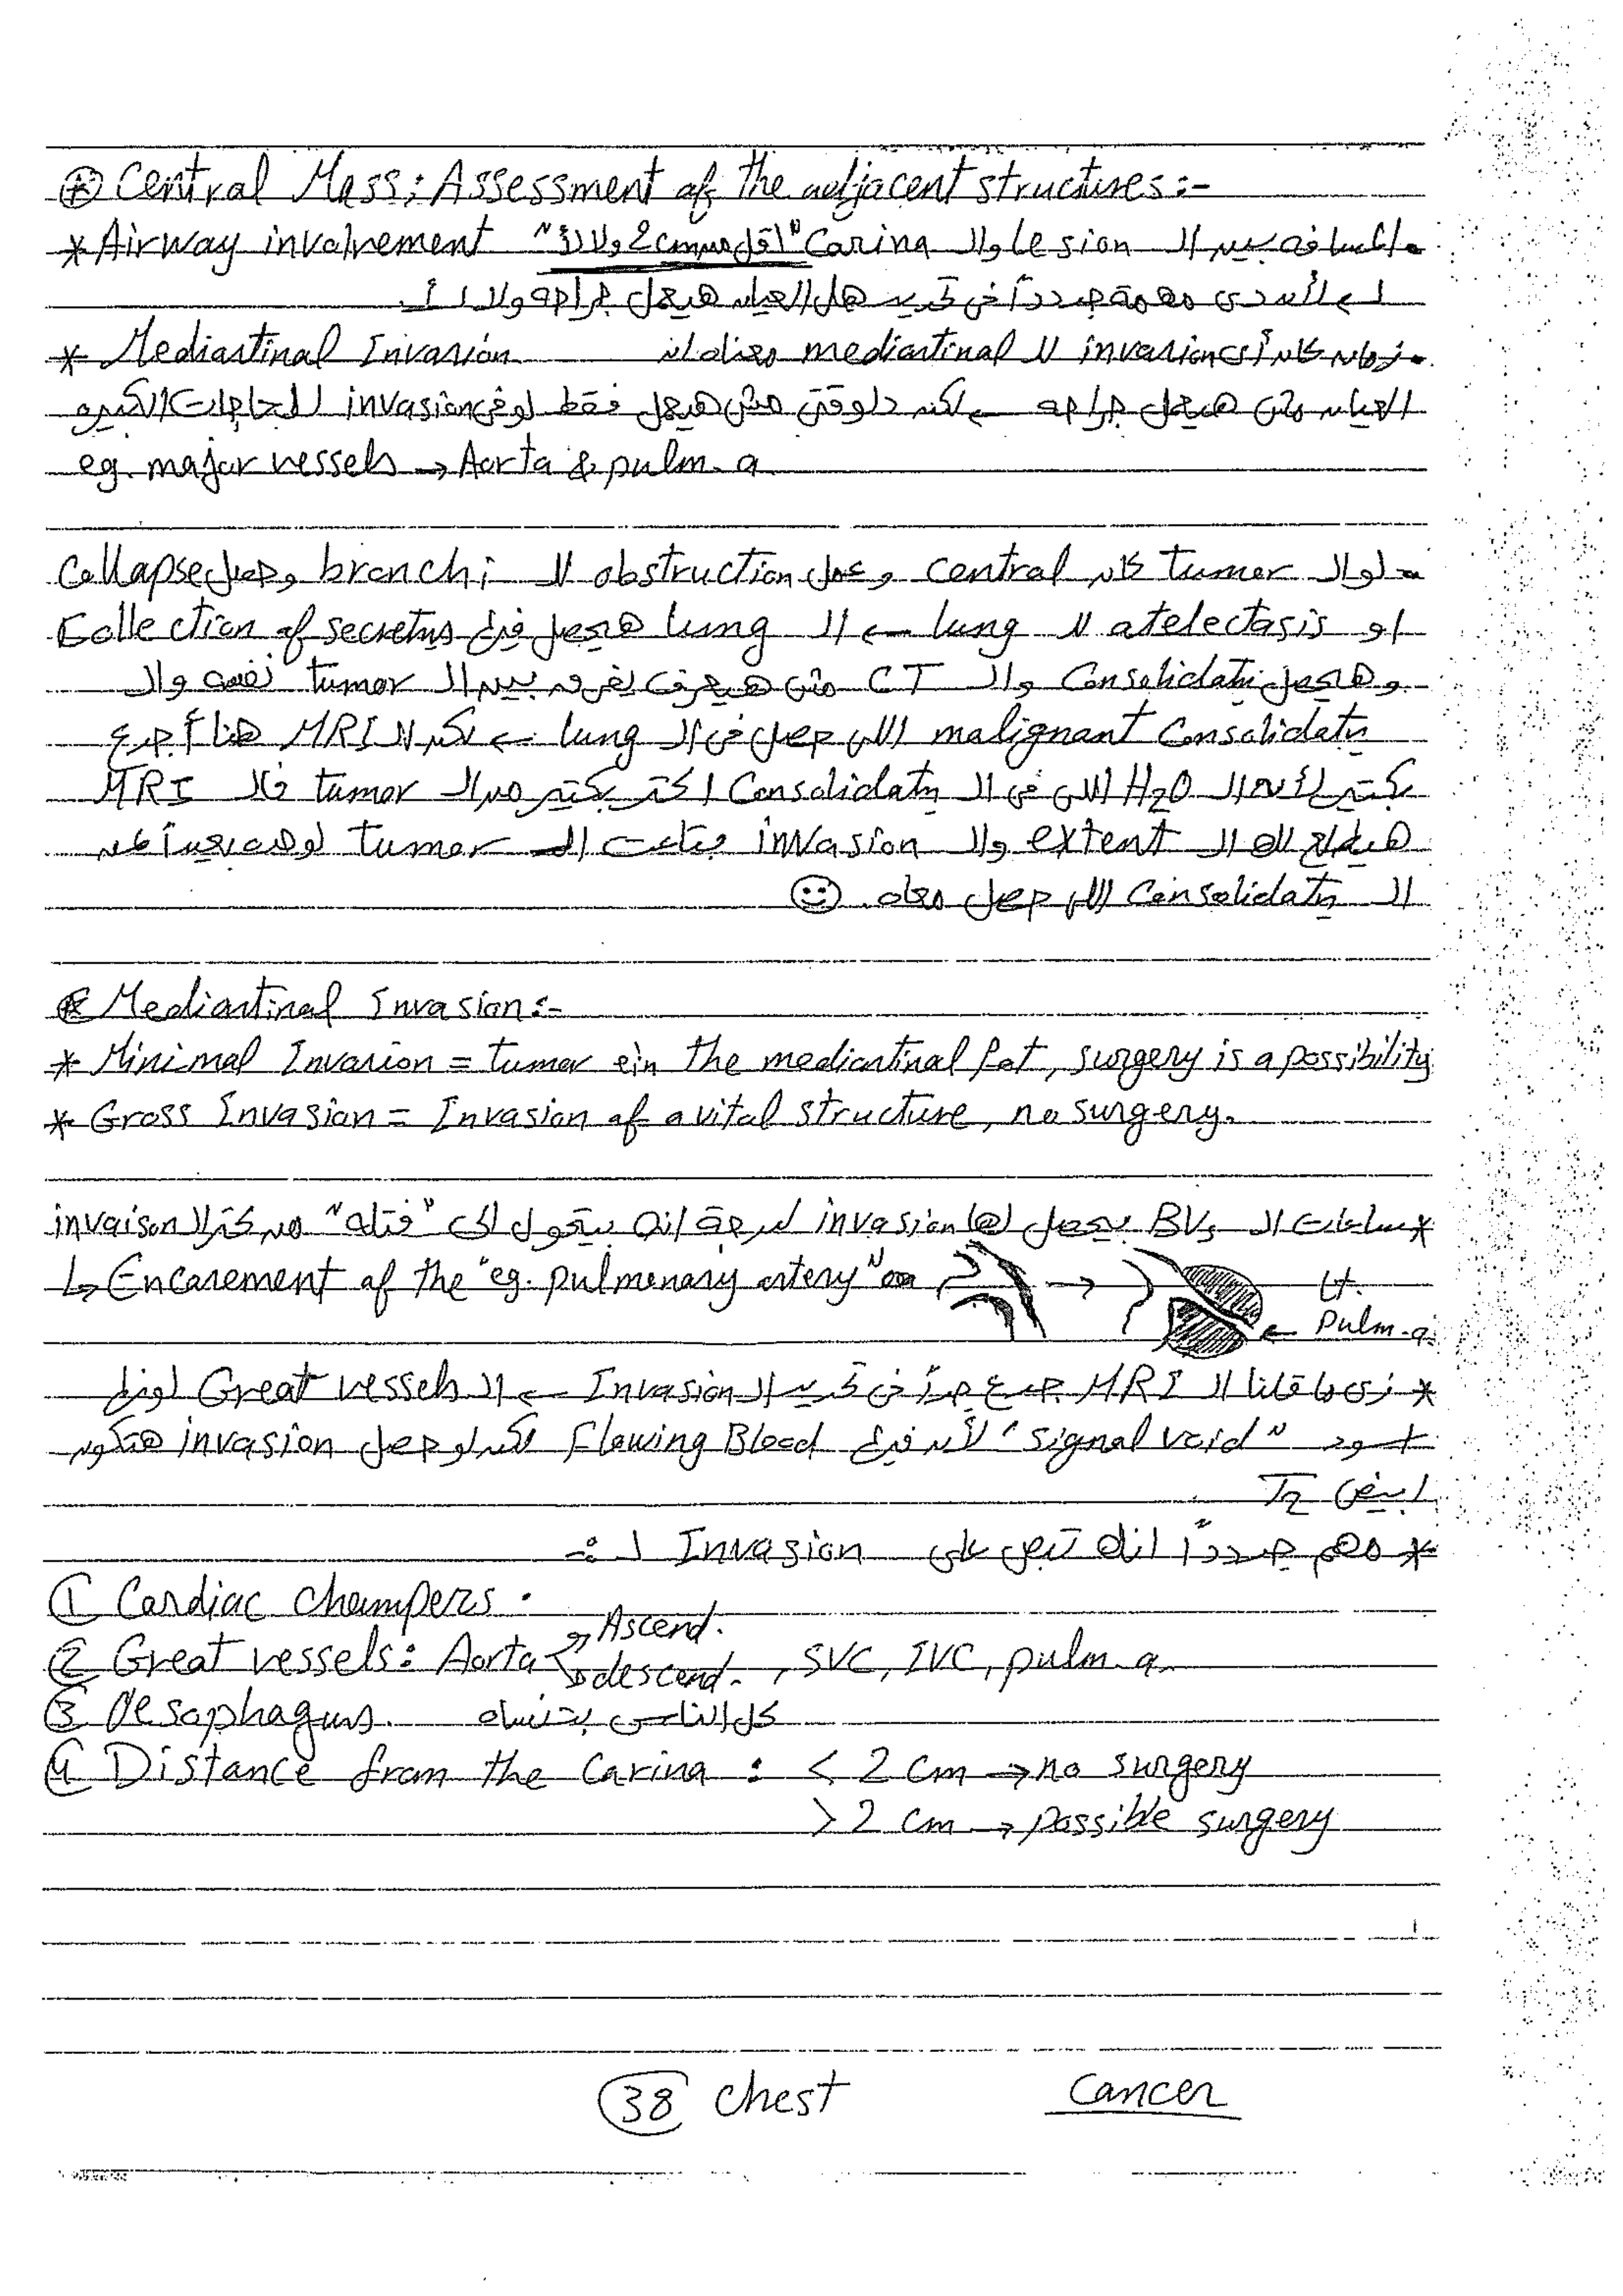 ⊛ Central Mass; Assessment of the adjacent structures:-
* Airway involvement "أقل من 2 cm ولا لأ" Carina والـ lesion المسافة بين الـ
لأن دى مهمة جداً فى تحديد هل العيان هيعمل جراحه ولا لأ.
* Mediastinal Invasion معناه ان mediastinal لل invasion زمان كان أى
العيان مش هيعمل جراحه ← لكن دلوقتى مش هيعمل فقط لو فى invasion للحاجات الكبيره
eg. major vessels → Aorta & pulm. a
لو الـ tumor كان central وعمل obstruction للـ bronchi وحصل collapse
او atelectasis لل lung ← الـ lung هيحصل فيها Collection of secretns
وهيحصل Consolidatn والـ CT مش هيعرف يفرق بين الـ tumor نفسه والـ
malignant Consolidatn اللى حصل فى الـ lung ← لكن الـ MRI هنا أجدع
بكتير لأن الـ H2O اللى فى الـ Consolidatn اكتر بكتير من الـ tumor فالـ MRI
هيطلع الـ extent والـ invasion بتاعت الـ tumor لوحده بعيداً عن
الـ Consolidatn اللى حصل معاه. ☺
⊛ Mediastinal Invasion:-
* Minimal Invasion = tumor in the mediastinal fat, surgery is a possibility
* Gross Invasion = Invasion of a vital structure, no surgery.
* ساعات الـ BVs بيحصل لها invasion لدرجة انه بيتحول الى "فتله" من كتر الـ invaison
↳ Encasement of the "eg. pulmonary artery" → Lt.
← Pulm. a.
* زى ما قلنا الـ MRI جدع جداً فى تحديد الـ Invasion ← الـ Great vessels لونها
اسود "signal void" لأن فيها Flowing Blood لكن لو حصل invasion هتكون
ابيض T2
* مهم جداً انك تبص على Invasion لـ :-
① Cardiac champers.
② Great vessels: Aorta Ascend. descend. , SVC, IVC, pulm. a.
③ Oesophagus. كل الناس بتنساه
④ Distance from the Carina : < 2 cm → no surgery
> 2 cm → possible surgery
38 Chest Cancer